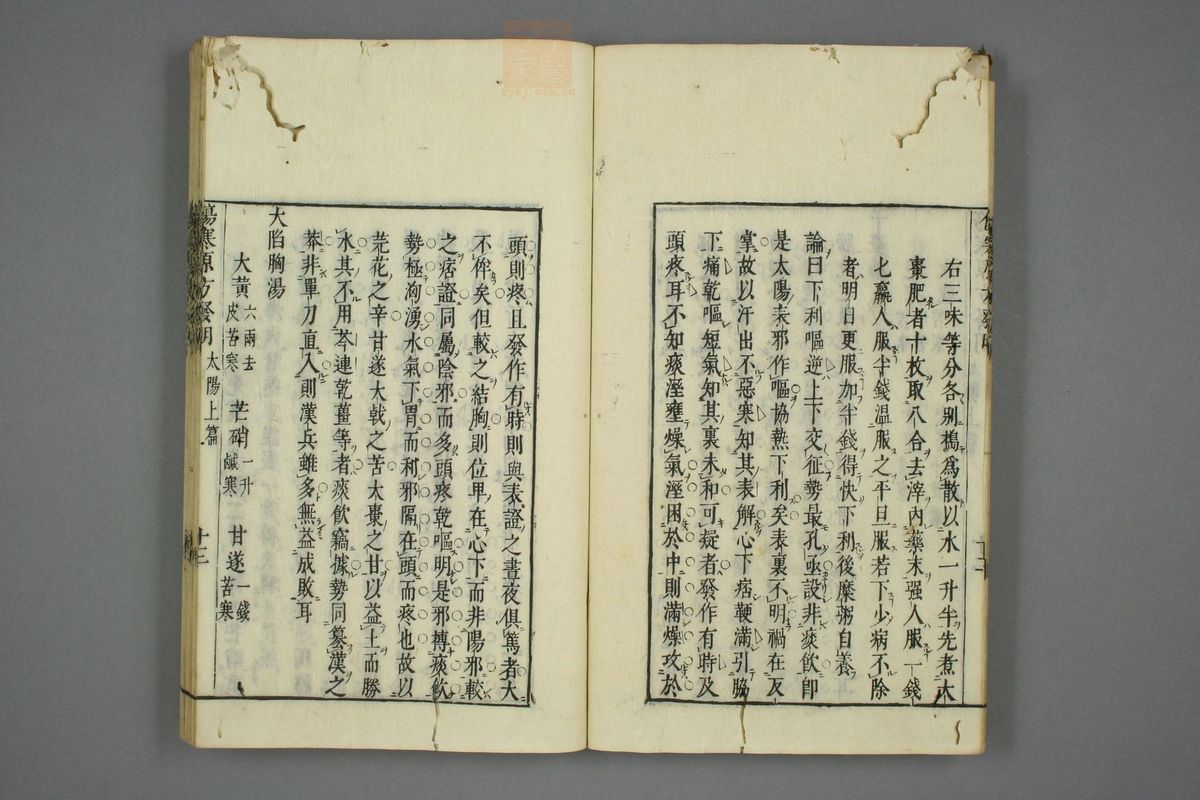 右三味等分各别搗爲散以水一升半先煮大
棗肥者十枚取八合去滓內藥末强人服一錢
七羸人服半錢溫服之平旦服若下少病不除
者明日更服加半錢得快下利後糜粥自養
論曰下利嘔逆上下交征勢最孔亟設非痰飲卽
是太陽表邪作嘔協熱下利矣表裏不明禍在反
掌故以汗出不惡寒知其表解心下痞鞕滿引脇
下痛乾嘔短氣知其裏未和可疑者發作有時及
頭疼耳不知痰溼壅燥氣溼困於中則滿燥攻於
頭則疼且發作有時則與表證之晝夜俱篤者大
不侔矣但較之結胸則位卑在心下而非陽邪較
之痞證同屬陰邪而多頭疼乾嘔明是邪搏痰飲
勢極洶湧水氣下胃而利邪隔在頭而疼也故以
芫花之辛甘遂大戟之苦大棗之甘以益土而勝
水其不用芩連乾薑等者痰飲竊據勢同纂漢之
莽非單刀直入則漢兵雖多無益成敗耳
大陷胸湯
大黃六兩去皮苦寒 芒硝一升鹹寒 甘遂一錢苦寒
傷寒原方發明 太陽上篇 十三